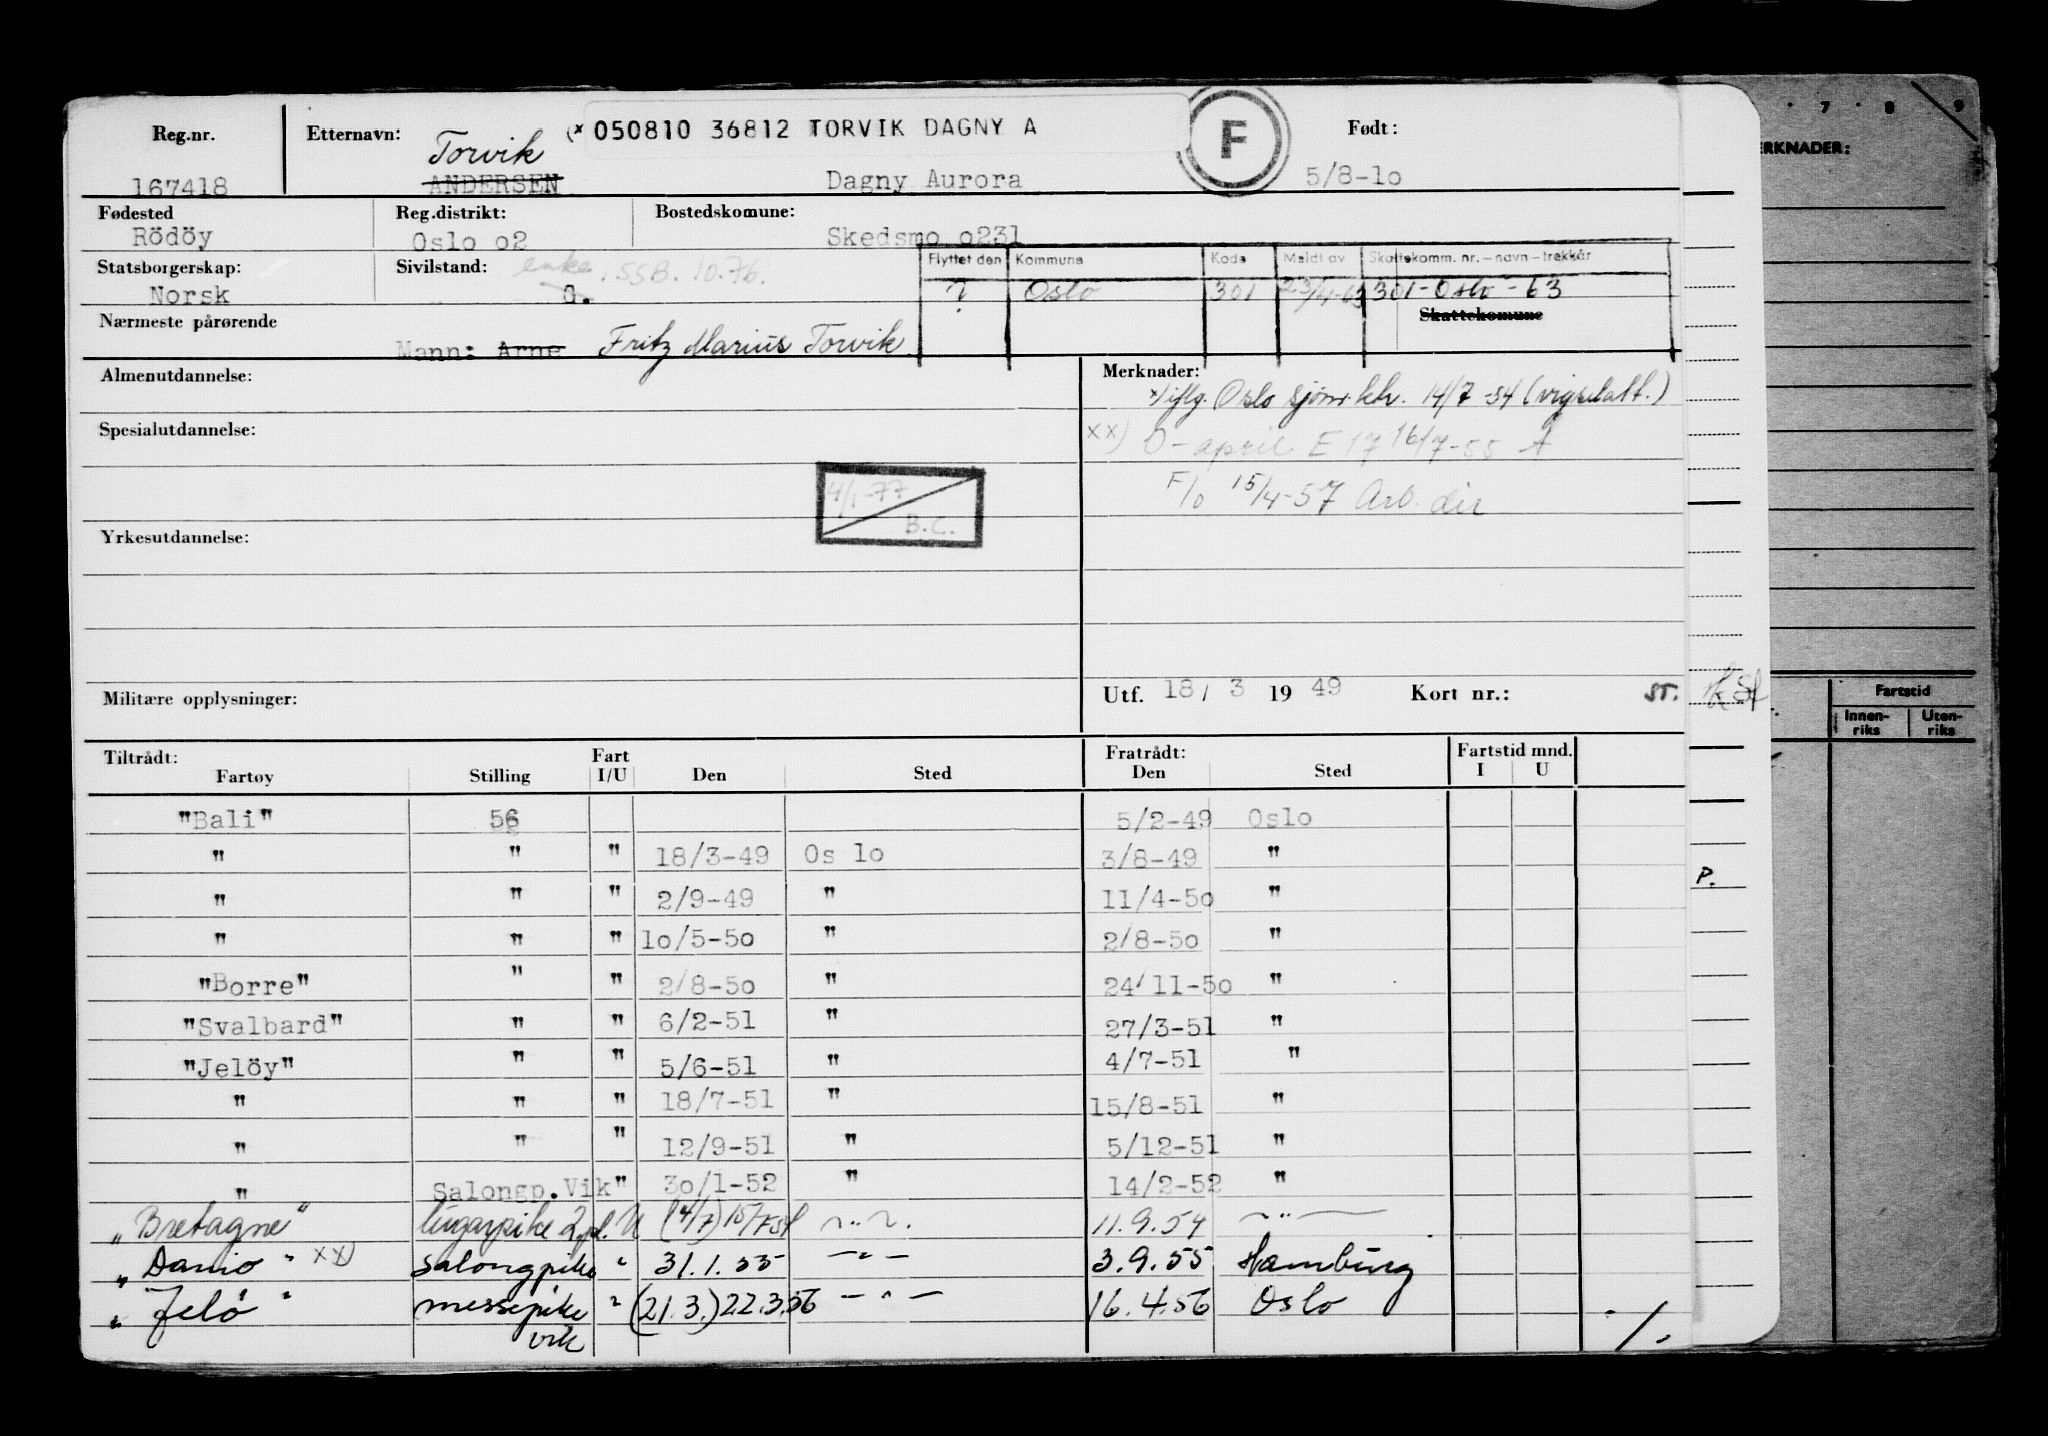 Reg.nr. Etternavn: (x 050810 36812 TORVIK DAGNY A F Født:
Torvik
167418 ANDERSEN Dagny Aurora 5/8-1o
Fødested Reg.distrikt: Bostedskomune:
Rödöy Oslo o2 Skedsmo o231
Statsborgerskap: Sivilstand: enke. SSB. 10.76. Flyttet den Kommune Kode Meldt av Skattekomm. nr. – navn – trekkår
Norsk G. ? Oslo 301 23/4-63 301 - Oslo - 63
Skattekomune
Nærmeste pårørende
Mann: Arne Fritz Marius Torvik
Almenutdannelse: Merknader:
x) iflg. Oslo sjøm.ktr. 14/7-54 (vigselatt.)
Spesialutdannelse: xx) O- april E 17 16/7-55 A
4/1-77 F/o 15/4-57 Arb. dir
B.C.
Yrkesutdannelse:
Militære opplysninger: Utf. 18/ 3 19 49 Kort nr.: ST.
Tiltrådt: Fart Fratrådt: Fartstid mnd.
Fartøy Stilling I/U Den Sted Den Sted I U
"Bali" 56 5/2-49 Oslo
" " " 18/3-49 Os lo 3/8-49 "
" " " 2/9-49 " 11/4-5o "
" " " 1o/5-5o " 2/8-5o "
"Borre" " " 2/8-5o " 24/11-5o "
"Svalbard" " " 6/2-51 " 27/3-51 "
"Jelöy" " " 5/6-51 " 4/7-51 "
" " " 18/7-51 " 15/8-51 "
" " " 12/9-51 " 5/12-51 "
" Salongp.Vik " 3o/1-52 " 14/2-52 "
"Bretagne" lugarpike 2.pl. U (4/7) 15/7 54 — " — 11.9.54 — " —
"Danio" xx) salongpike " 31.1.55 — " — 3.9.55 Hamburg
"Jelö" messepike " (21.3.) 22.3.56 — " — 16.4.56 Oslo
vik
7 8 9
ERKNADER:
Fartstid
Innen-riks Uten-riks
P.